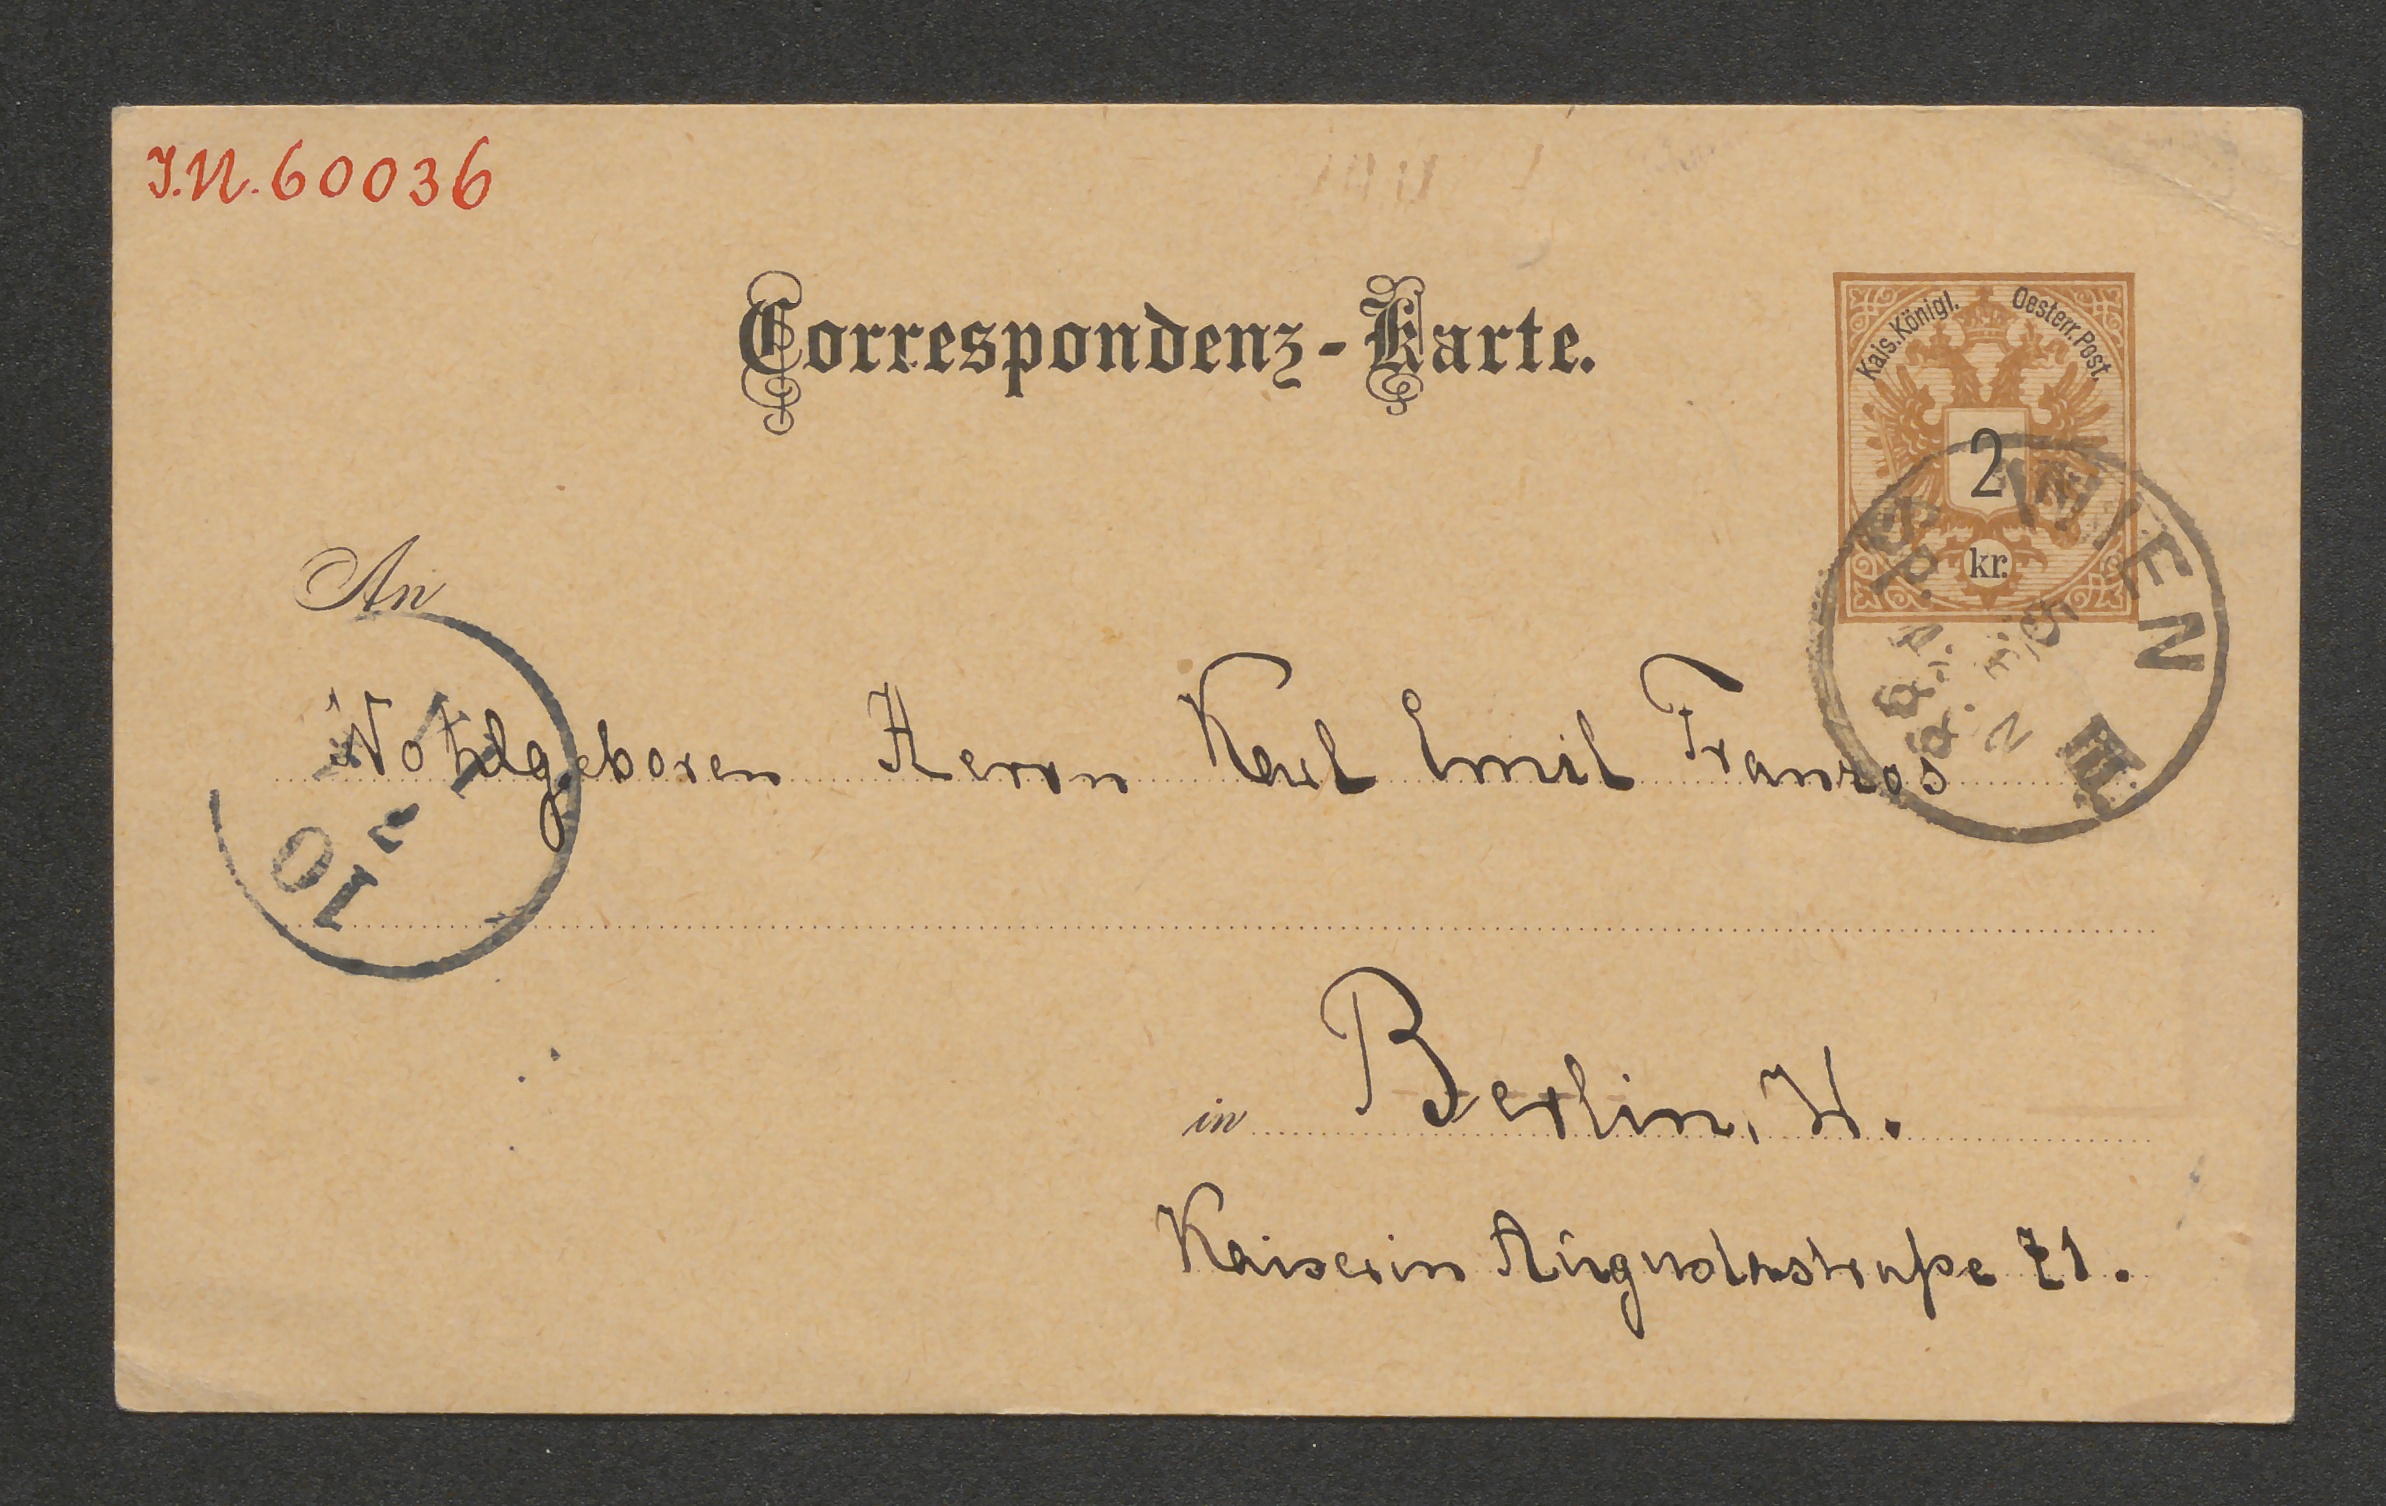 J.N. 60036
Correspondenz-Karte.
Kais. Königl. Oesterr. Post.
2
kr.
WIEN
III
An
Wohlgeboren Herrn Karl Emil Franzos
10
in Berlin, W.
Kaiserin Augustastraße 71.